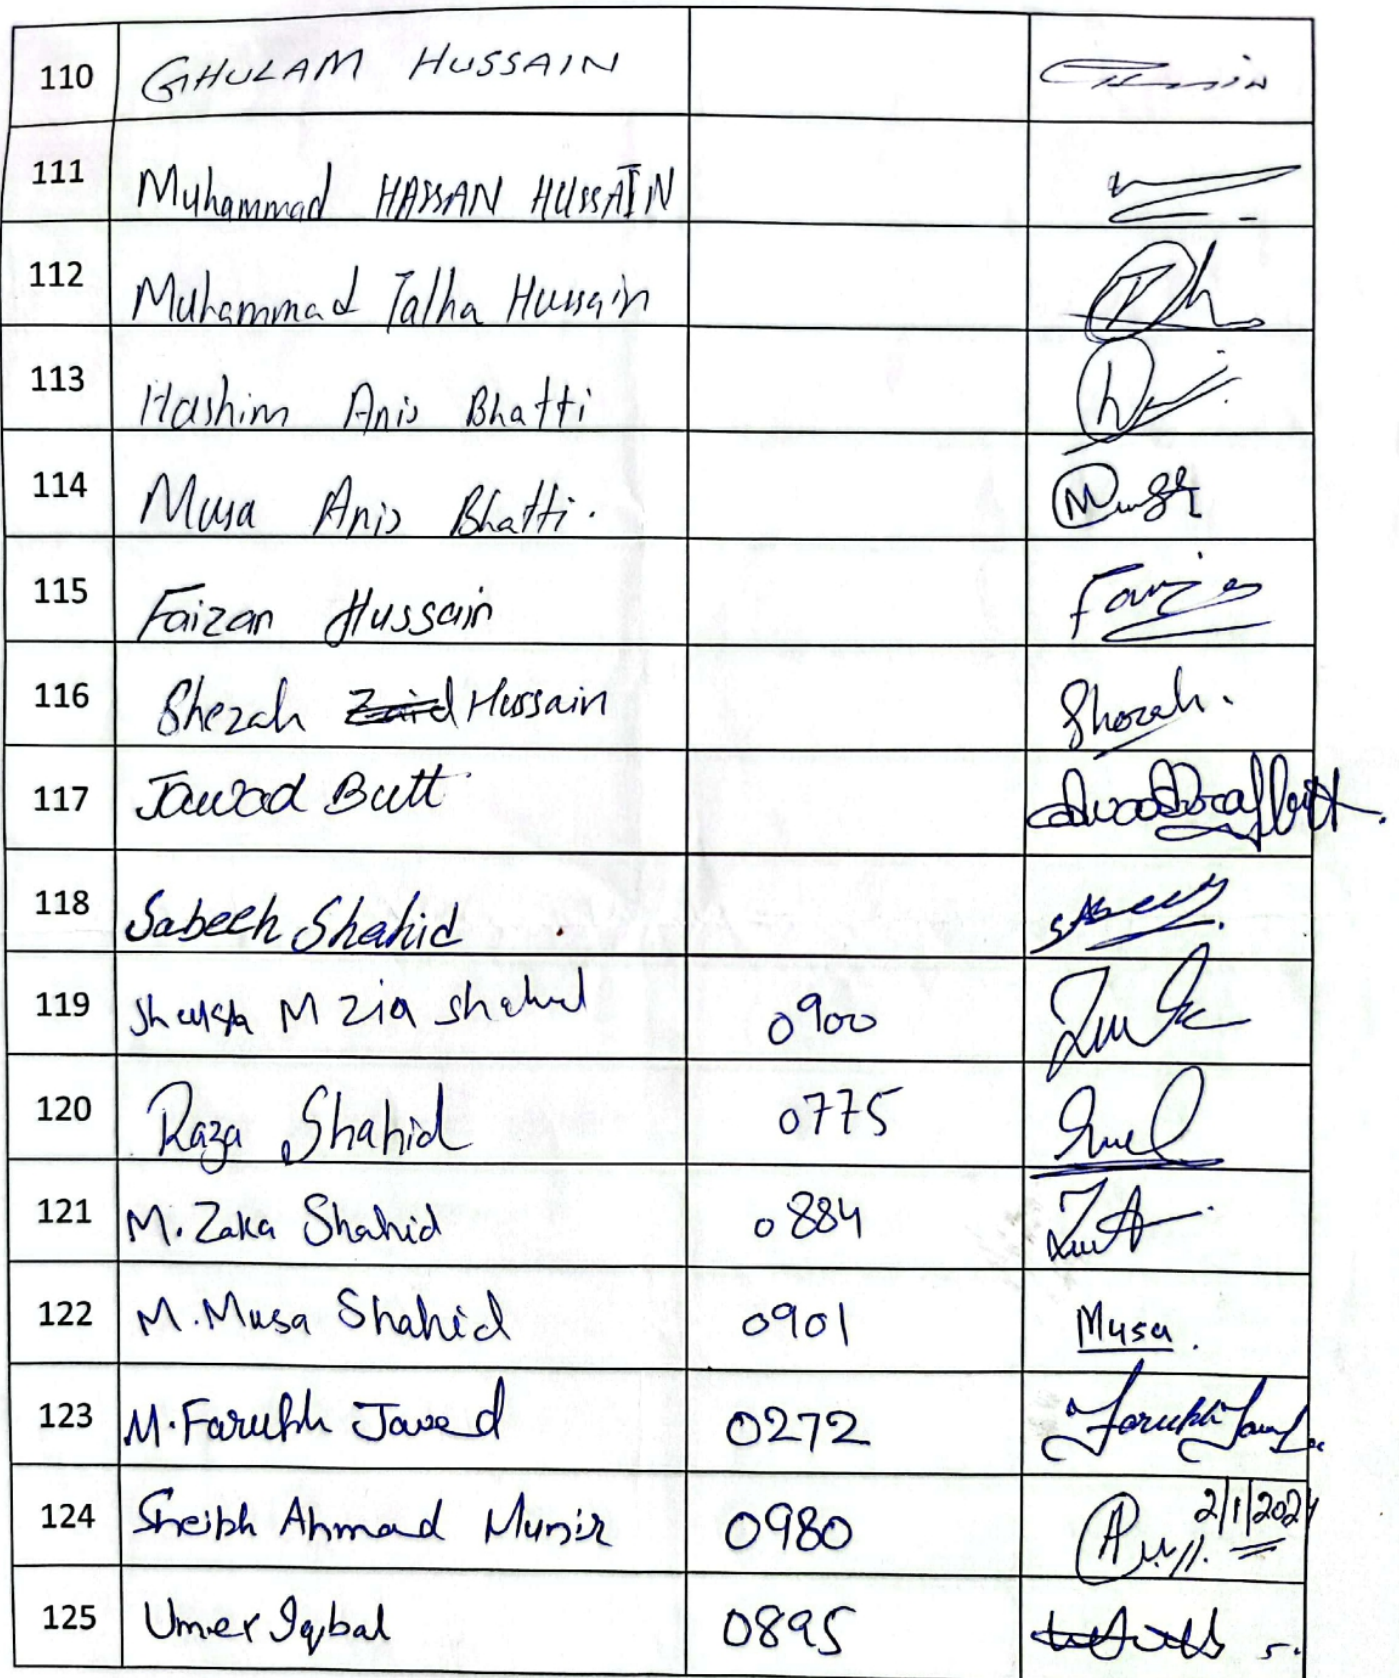 110 GHULAM HUSSAIN
111 Muhammad HASSAN HUSSAIN
112 Muhammad Talha Hussain
113 Hashim Anis Bhatti
114 Musa Anis Bhatti.
115 Faizan Hussain Faiz
116 Shezah Zaid Hussain Shezah.
117 Jawad Butt
118 Sabeeh Shahid
119 M Zia Shahid 0900
120 Raza Shahid 0775
121 M. Zaka Shahid 0884
122 M. Musa Shahid 0901 Musa.
123 M. Farukh Javed 0272 Farukh
124 Sheikh Ahmad Munir 0980 2/1/2024
125 Umer Iqbal 0895